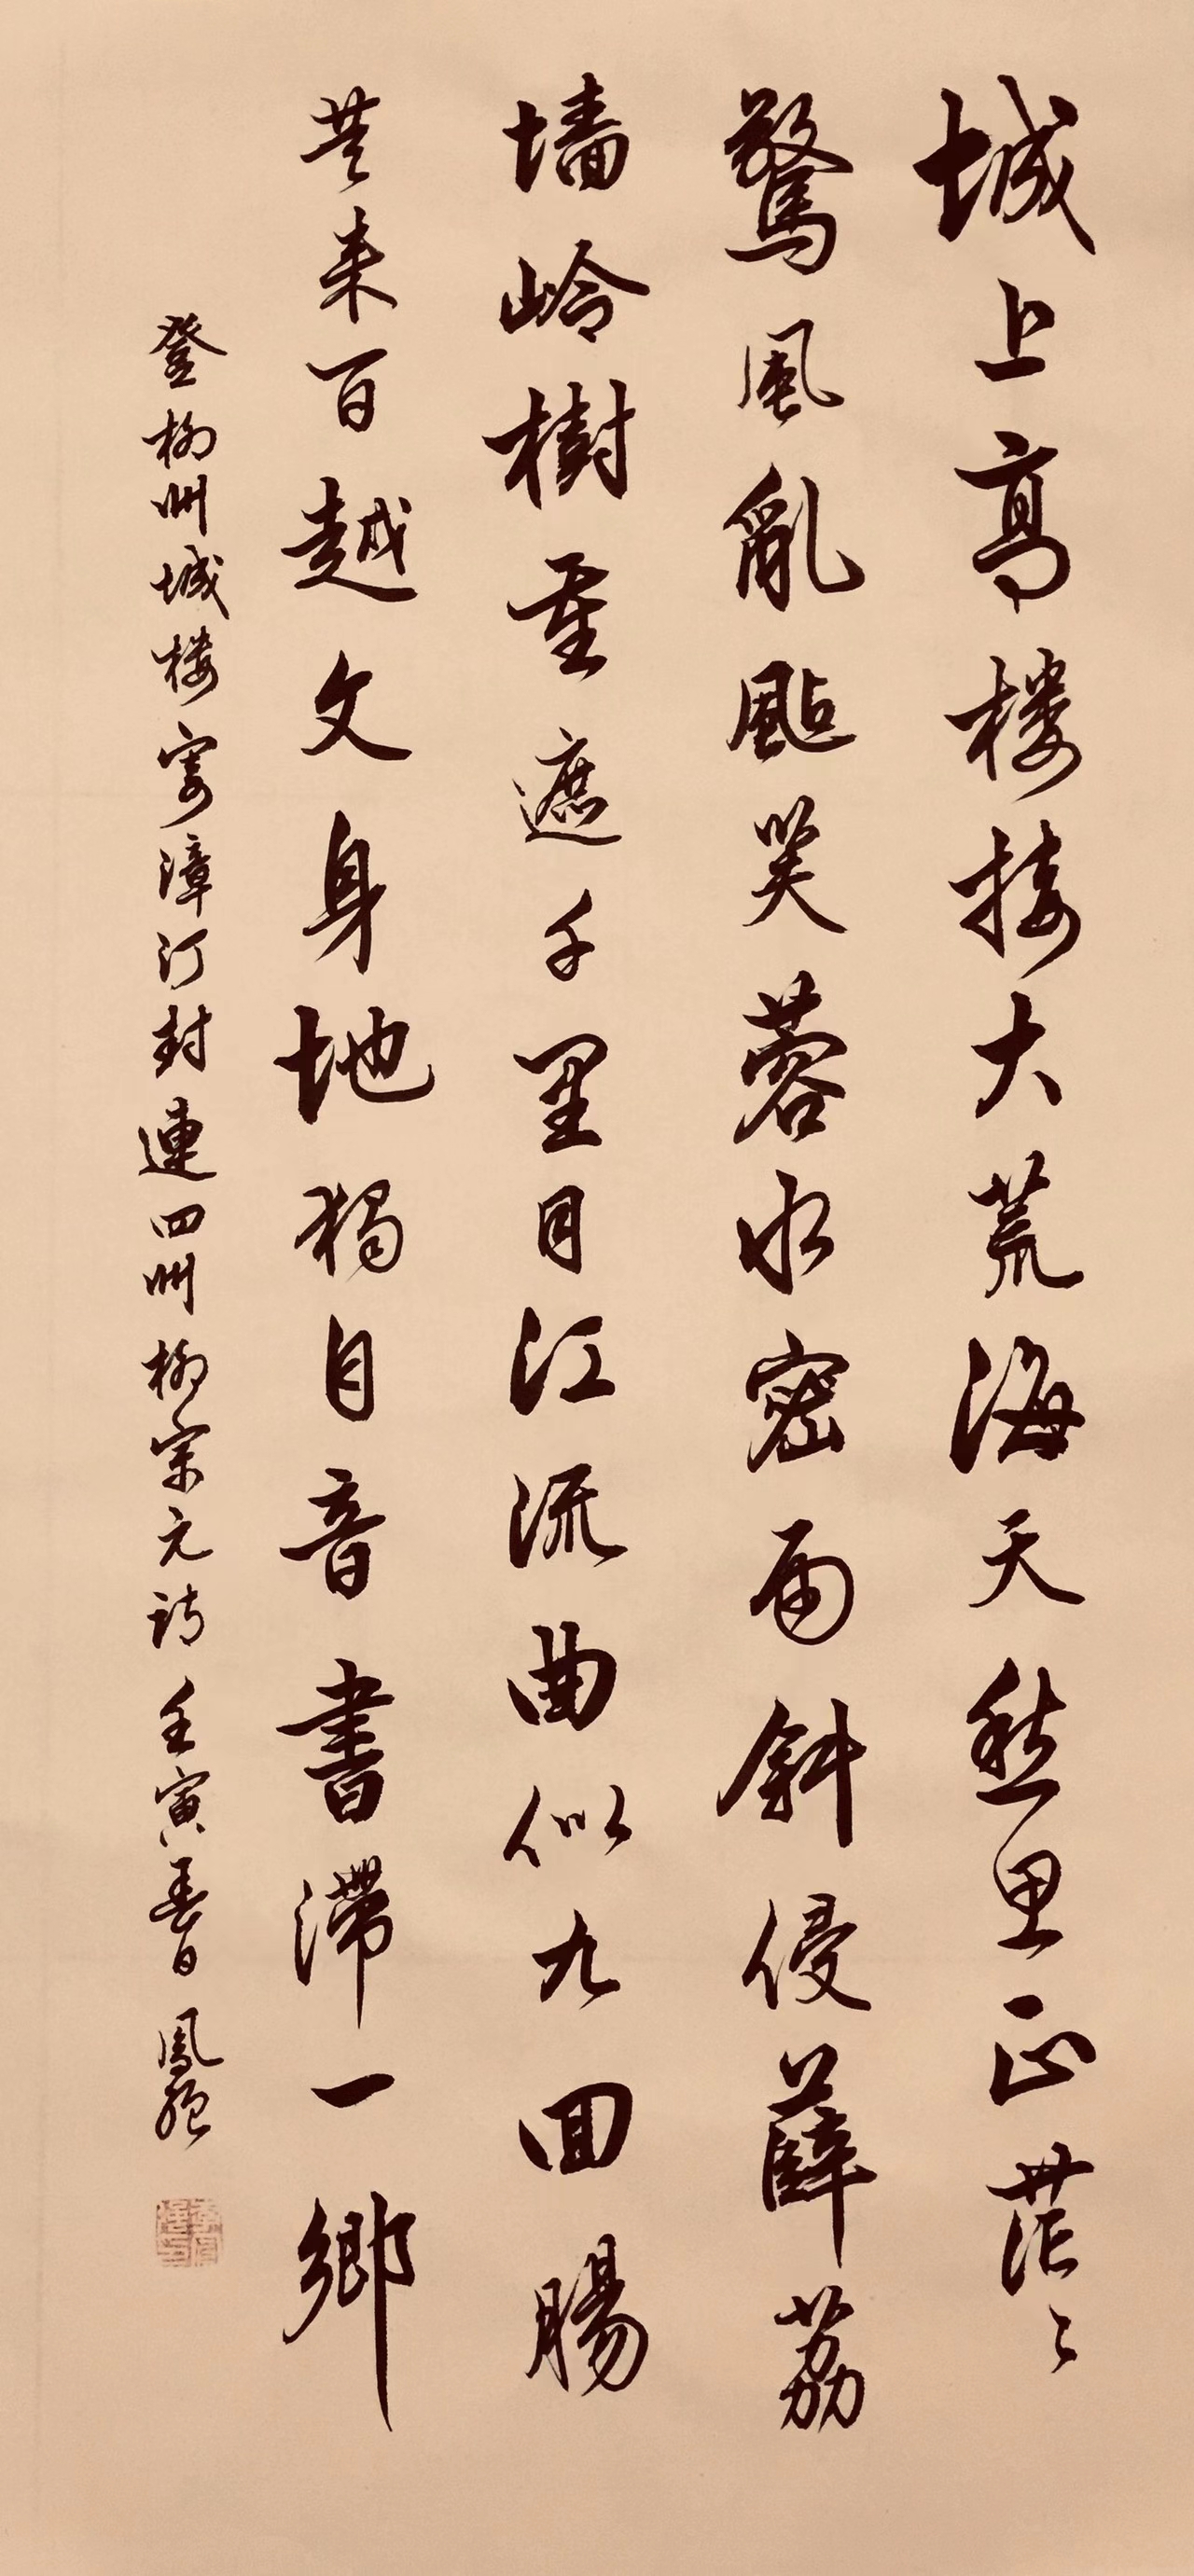 城上高楼接大荒海天愁思正茫々
驚風亂颭芙蓉水密雨斜侵薜荔
墙岭樹重遮千里目江流曲似九回腸
共来百越文身地獨自音書滯一鄉
登柳州城楼寄漳汀封連四州 柳宗元詩 壬寅春日 鳳